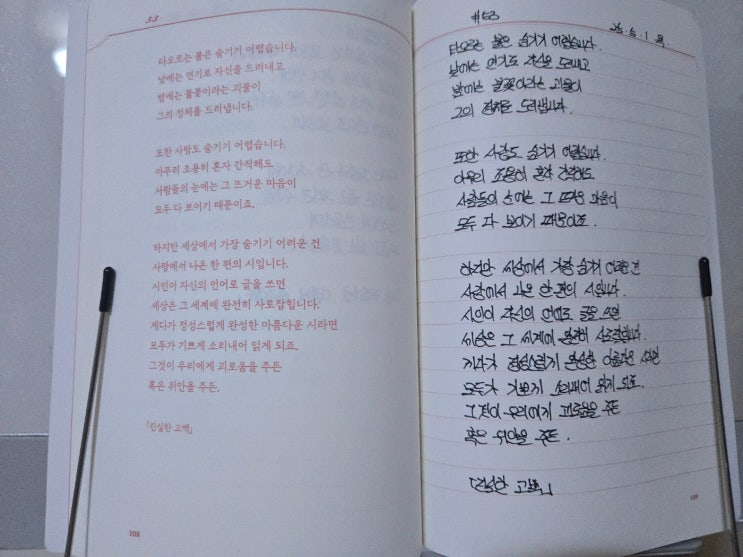 53
타오르는 불은 숨기기 어렵습니다.
낮에는 연기로 자신을 드러내고
밤에는 불꽃이라는 괴물이
그의 정체를 드러냅니다.
또한 사람도 숨기기 어렵습니다.
아무리 조용히 혼자 간직해도
사람들의 눈에는 그 뜨거운 마음이
모두 다 보이기 때문이죠.
하지만 세상에서 가장 숨기기 어려운 건
사랑에서 나온 한 편의 시입니다.
시인이 자신의 언어로 글을 쓰면
세상은 그 세계에 완전히 사로잡힙니다.
게다가 정성스럽게 완성한 아름다운 시라면
모두가 기쁘게 소리내어 읽게 되죠.
그것이 우리에게 괴로움을 주든
혹은 위안을 주든.
「진실한 고백」
108
#53
타오르는 불은 숨기기 어렵습니다.
낮에는 연기로 자신을 드러내고
밤에는 불꽃이라는 괴물이
그의 정체를 드러냅니다.
또한 사람도 숨기기 어렵습니다.
아무리 조용히 혼자 간직해도
사람들의 눈에는 그 뜨거운 마음이
모두 다 보이기 때문이죠.
하지만 세상에서 가장 숨기기 어려운 건
사랑에서 나온 한 편의 시입니다.
시인이 자신의 언어로 글을 쓰면
세상은 그 세계에 완전히 사로잡힙니다.
게다가 정성스럽게 완성한 아름다운 시라면
모두가 기쁘게 소리내어 읽게 되죠.
그것이 우리에게 괴로움을 주든
혹은 위안을 주든.
「진실한 고백」
109